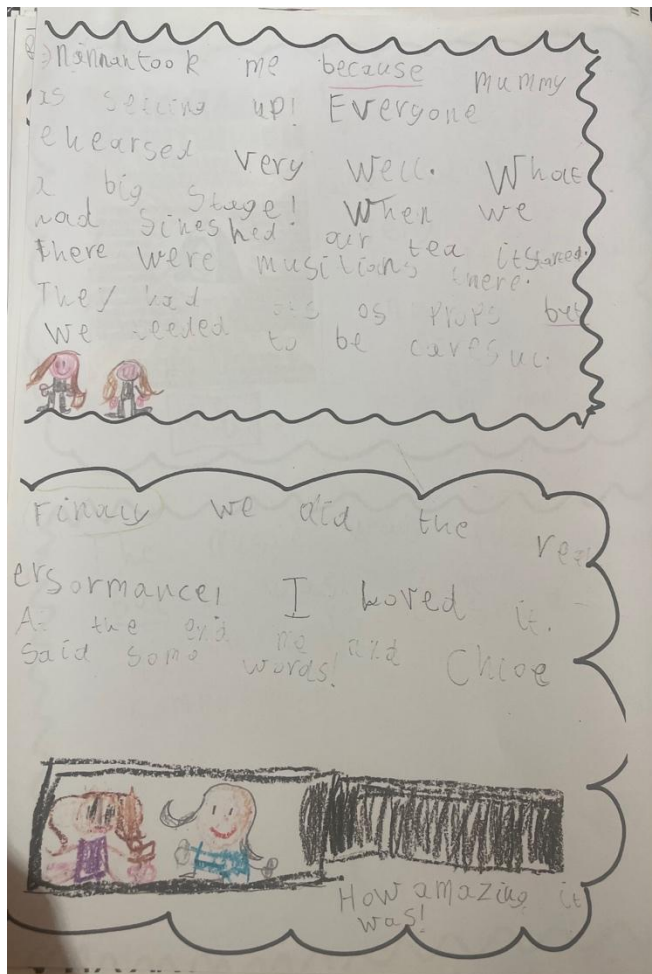 Nannan took me because mummy
is setting up! Everyone
ehearsed very well. What
a big stage! When we
had sineshed our tea it started.
there were musicians there.
They had os props but
we needed to be caresul.
Finally we did the
ersormance! I loved it.
At the end me and Chloe
said some words!
How amazing it
was!